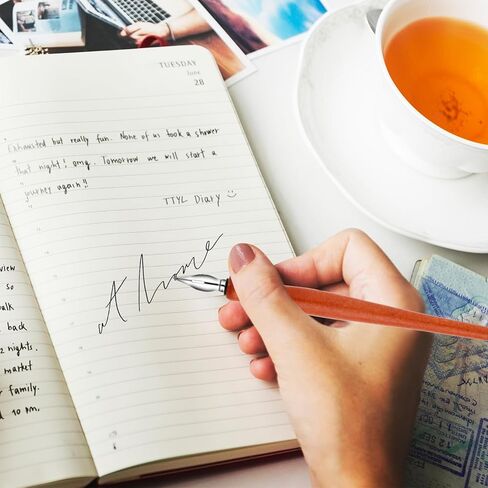 TUESDAY
June
28
Exhausted but really fun. None of us took a shower
that night! omg. Tomorrow we will start a
journey again!!
TTYL Diary
at home
view
so
walk
back
nights.
market
family.
10 pm.
12 SEP